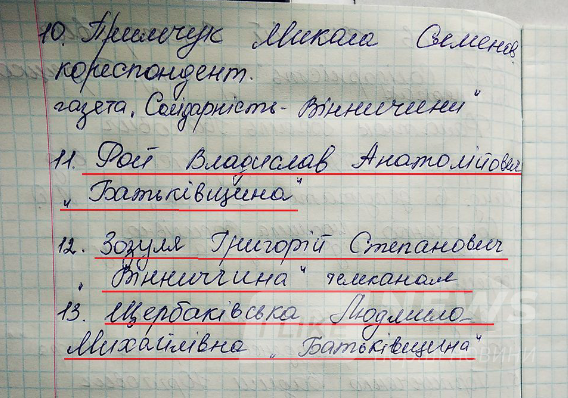 10. Примчук Микола Семенов.
кориспондент.
газета „Солідарність - Вінничини"
11. Фой Владислав Анатолійович
„Батьківщина"
12. Зозуля Григорій Степанович
„Вінниччина" телеканал
13. Щербаківська Людмила
Михайлівна „Батьківщина"